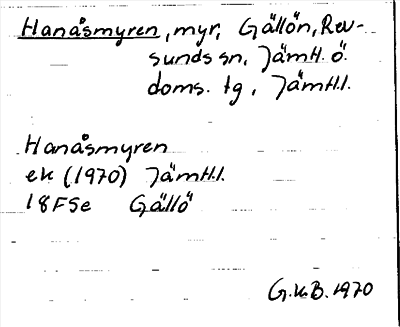 Hanåsmyren, myr, Gällön, Rev-
sunds sn, Jämtl. ö.
doms. tg, Jämtl.l.
Hanåsmyren
ek (1970) Jämtl.l.
18F5e Gällö
G.K.B. 1970